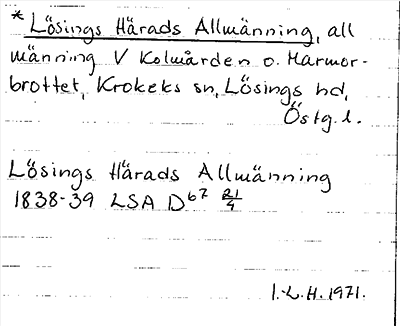 * Lösings Härads Allmänning, all
männing V Kolmården o. Marmor-
brottet, Krokeks sn, Lösings hd,
Östg. l.
Lösings Härads Allmänning
1838-39 LSA D67 21/4
I.-L. H. 1971.